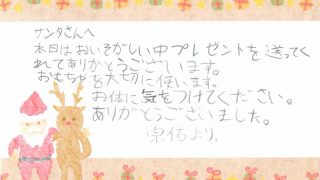 サンタさんへ
本日はおいそがしい中プレゼントを送ってく
れてありがとうございます。
おもちゃを大切に使います。
お体に気をつけてください。
ありがとうございました。
宗佑より。